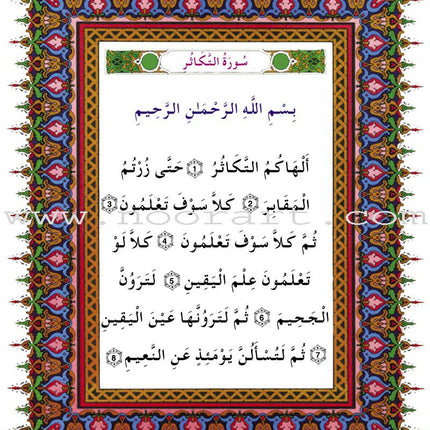 سُورَةُ التَّكَاثُرِ
بِسْمِ اللَّهِ الرَّحْمَـٰنِ الرَّحِيمِ
أَلْهَاكُمُ التَّكَاثُرُ ﴿1﴾ حَتَّى زُرْتُمُ
الْمَقَابِرَ ﴿2﴾ كَلاَّ سَوْفَ تَعْلَمُونَ ﴿3﴾
www.noorart.com
ثُمَّ كَلاَّ سَوْفَ تَعْلَمُونَ ﴿4﴾ كَلاَّ لَوْ
تَعْلَمُونَ عِلْمَ الْيَقِينِ ﴿5﴾ لَتَرَوُنَّ
الْجَحِيمَ ﴿6﴾ ثُمَّ لَتَرَوُنَّهَا عَيْنَ الْيَقِينِ
﴿7﴾ ثُمَّ لَتُسْأَلُنَّ يَوْمَئِذٍ عَنِ النَّعِيمِ ﴿8﴾